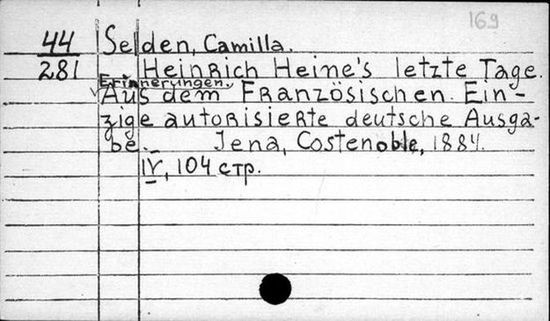 169
44 Selden, Camilla.
281 Heinrich Heine's letzte Tage.
Erinnerungen.
Aus dem Französischen. Ein-
zige autorisierte deutsche Ausga-
be.- Jena, Costenoble, 1884.
IV, 104 стр.